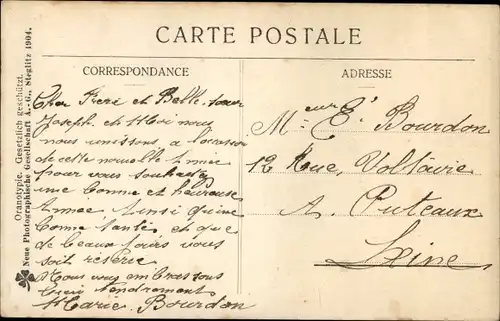 CARTE POSTALE
CORRESPONDANCE
Cher Frere et Belle-sœur
Joseph et Moi nous
nous unissons a l'occasion
de cette nouvelle Année
pour vous souhaiter
une bonne et heureuse
Année. Ainsi qu'une
bonne santé et que
de beaux jours vous
soit réservé
Nous vous embrassons
bien tendrement
Marie Bourdon
ADRESSE
Mr E. Bourdon
12 Rue, Voltaire
A. Puteaux
Seine
Oranotypie. Gesetzlich geschützt.
Neue Photographische Gesellschaft A.-G., Steglitz 1904.